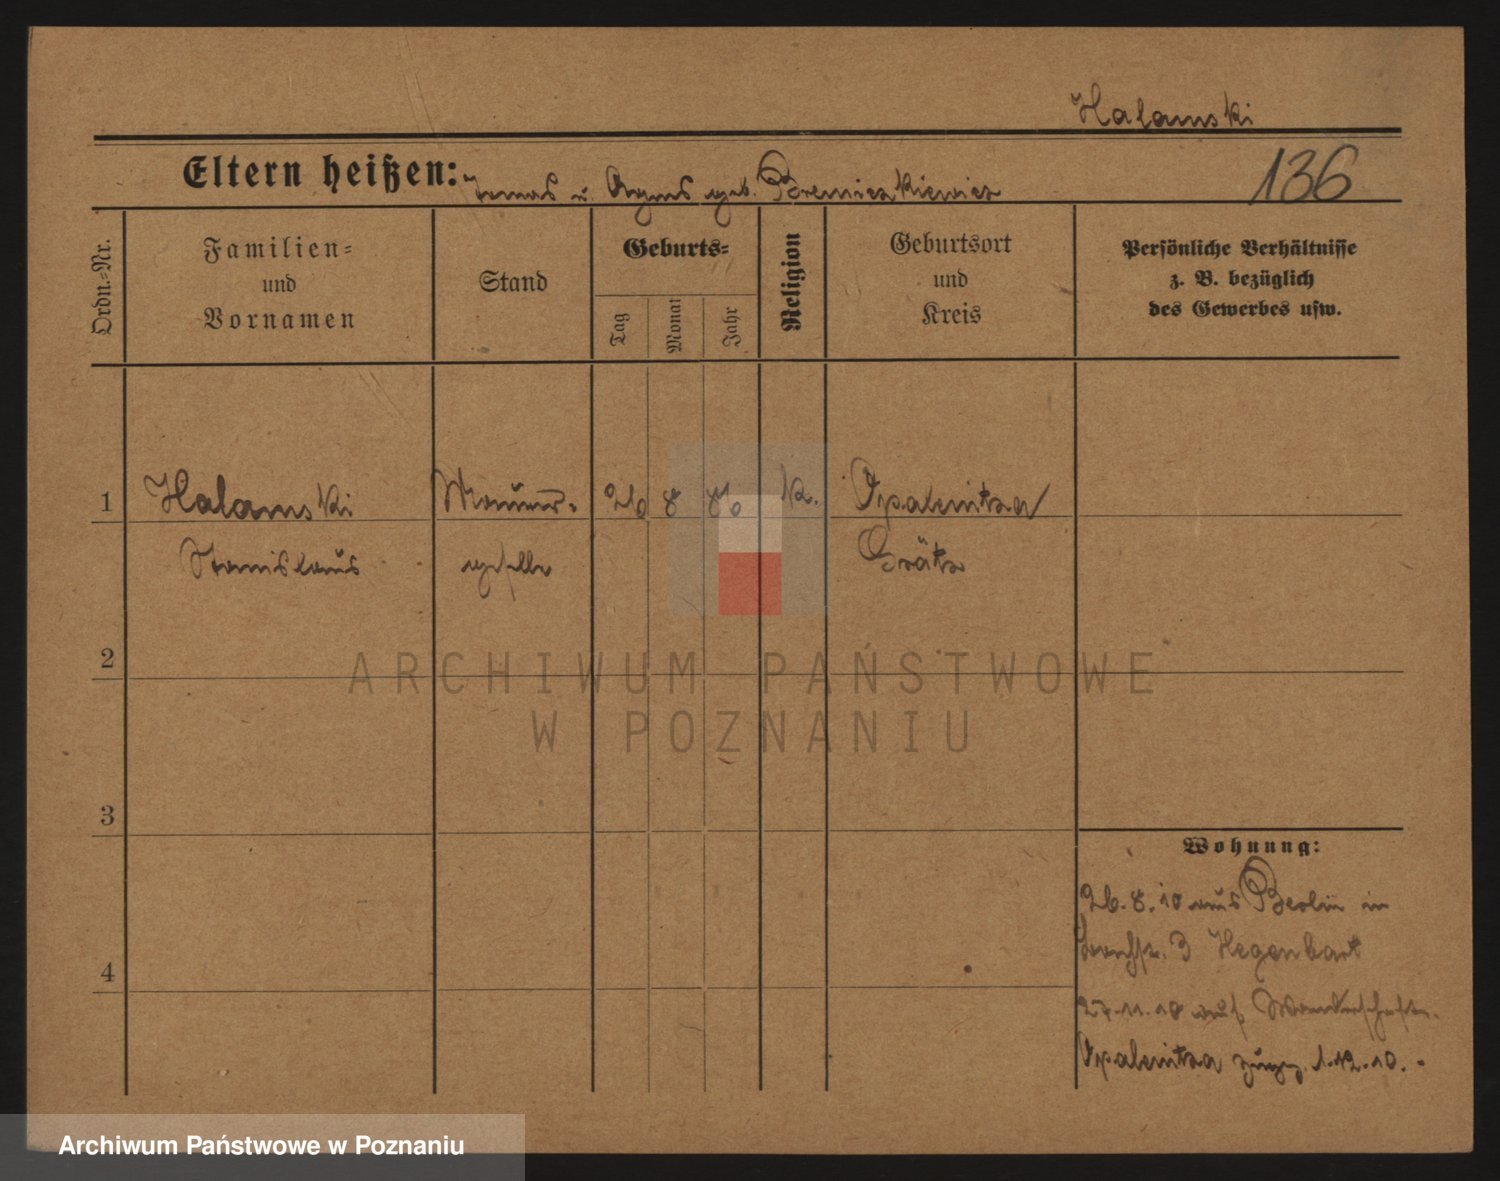 Halamski
Eltern heißen: Tomas u. Agnes geb. 136
Ordn.-Nr.
Familien-
und
Vornamen
Stand
Geburts-
Tag
Monat
Jahr
Religion
Geburtsort
und
Kreis
Persönliche Verhältnisse
z. B. bezüglich
des Gewerbes usw.
1 Halamski Maurer- 26 8 86 k. Opalenitza
Stanislaus geselle Grätz
2
ARCHIWUM PAŃSTWOWE
W POZNANIU
3
Wohnung:
26.8.10 aus Berlin in
3 Hegenbart
4
27.11.10 auf Wanderschaft
Opalenitza 1.12.10.
Archiwum Państwowe w Poznaniu